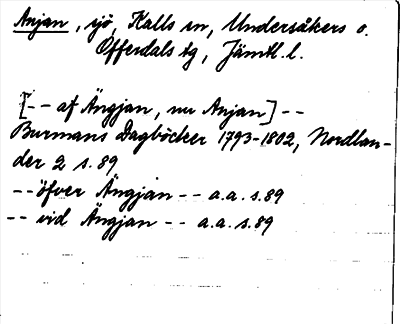 Anjan, sjö, Kalls sn, Undersåkers o.
Offerdals tg, Jämtl. l.
[-- af Ängjan, nu Anjan] --
Burmans Dagböcker 1793-1802, Nordlan-
der 2 s. 89
-- öfver Ängjan -- a.a. s. 89
-- vid Ängjan -- a.a. s. 89